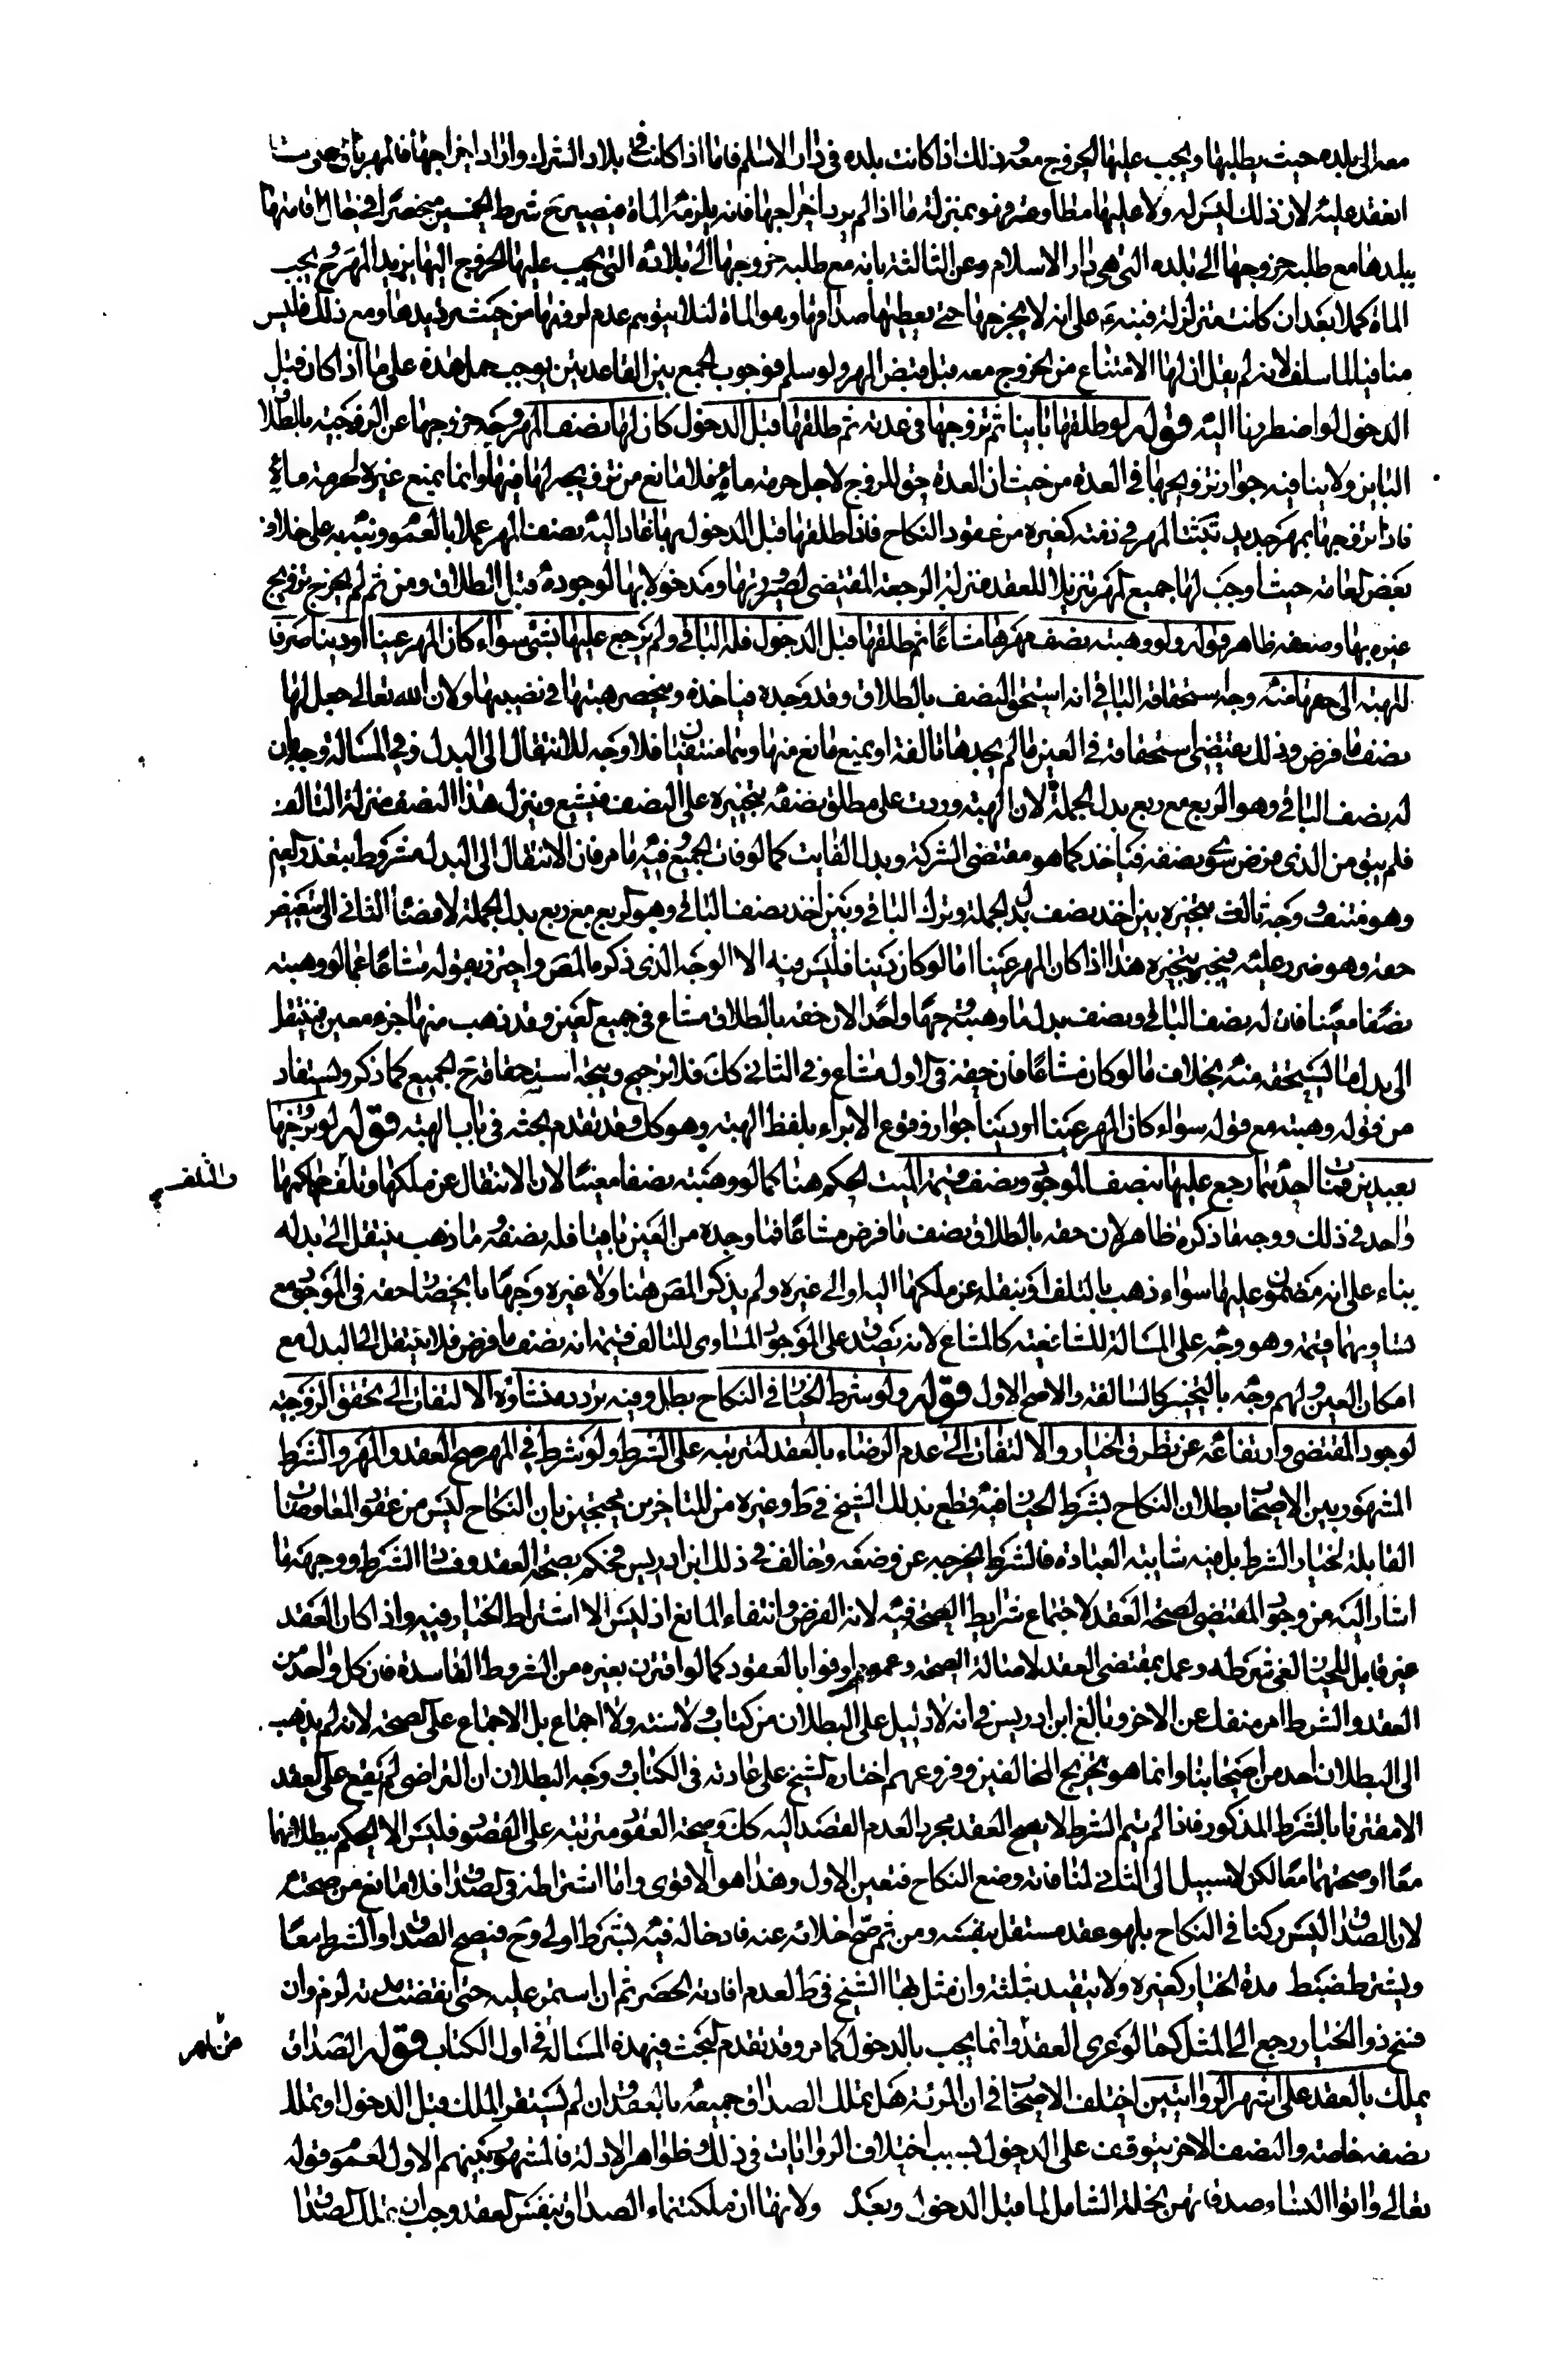 معه الى بلده حيث يطلبها ويجب عليها الخروج معه وذلك اذا كانت بلده في دار الاسلام فاما اذا كانت في بلاد الشرك واراد اخراجها فالمهر باق حيث
انعقد عليه لان ذلك ليس له ولا عليها مطاوعته وهو بمنزلة ما اذا لم يرد اخراجها فانه يلزمه الماة فيصير ح شرط الخمسين منحصرا في حال اقامتها
ببلدها مع طلبه خروجها الى بلده التي هي دار الاسلام وعن الثالثة بانه مع طلبه خروجها الى بلاده التي يجب عليها الخروج اليها يزيد المهر وح يجب
الماة كملا بعد ان كانت متزلزلة فنبه على انه لا يخرجها حتى يعطيها صداقها وهو الماة لئلا يتوهم عدم لزومها من حيث ترديدها ومع ذلك فليس
منافيا لما سلف لانه لم يقل ان لها الامتناع من الخروج معه قبل قبض المهر ولو سلم فوجوب الجمع بين القاعدتين يوجب حمل هذه على ما اذا كان قبل
الدخول لو اضطررنا اليه قوله لو طلقها باينا ثم تزوجها في عدته ثم طلقها قبل الدخول كان لها نصف المهر وجه خروجها عن الزوجية بالطلاق
البائن ولا ينافيه جواز تزويجها في العدة من حيث ان العدة حق للزوج لاجل حرمة مائه فلا مانع من تزويجه لها فيها وانما يمنع غيره لحرمة مائه
فاذا تزوجها بمهر جديد ثبت المهر في ذمته كغيره من عقود النكاح فاذا طلقها قبل الدخول بها عاد اليه نصف المهر عملا بالعموم ونبه به على خلاف
بعض العامة حيث اوجب لها جميع المهر تنزيلا للعقد منزلة الرجعة المقتضى لصيرورتها مدخولا بها لوجوده قبل الطلاق ومن ثم لم يجز تزويج
غيره بها وضعفه ظاهر قوله ولو وهبته نصف مهرها مشاعا ثم طلقها قبل الدخول فله الباقي ولم يرجع عليها بشئ سواء كان المهر عينا او دينا صرفا
للهبة الى حقها منه وجه استحقاقه الباقي انه استحق النصف بالطلاق وقد وجده فياخذه وينحصر هبتها في نصيبها ولان الله تعالى جعل لها
نصف ما فرض وذلك يقتضي استحقاقه في العين ما لم يجدها تالفة او يمنع مانع منها وهما منتفيان فلا وجه للانتقال الى البدل وفي المسالة وجهان
له نصف الباقي وهو الربع مع ربع بدل الجملة لان الهبة وردت على مطلق نصفه بتخييره على النصف فيشيع وينزل هذا النصف منزلة التالف
فلم يبق من الذي فرض سوى نصفه فياخذ كما هو مقتضى الشركة وبدل الفايت كما لو فات الجميع وفيه ما مر فان الانتقال الى البدل مشروط بتعذر العين
وهو منتف ووجه ثالث بتخييره بين اخذ نصف بدل الجملة وترك الباقي وبين اخذ نصف الباقي وهو الربع مع ربع بدل الجملة لافضاء الثاني الى تبعيض
حقه وهو ضرر عليه فيجبر بتخييره هذا اذا كان المهر عينا اما لو كان دينا فليس فيه الا الوجه الذي ذكره المص واحترز بقوله مشاعا عما لو وهبته
نصفا معينا فان له نصف الباقي ونصف بدل ما وهبته وجها واحدا لان حقه بالطلاق مشاع في جميع العين وقد ذهب منها جزء معين فينتقل
الى بدل ما يستحقه منه بخلاف ما لو كان مشاعا فان حقه في الاول مشاع وفي الثاني كك فلا ترجيح ويتجه استحقاقه ح الجميع كما ذكر ويستفاد
من قوله وهبته مع قوله سواء كان المهر عينا او دينا جواز وقوع الابراء بلفظ الهبة وهو كك وقد تقدم بحثه في باب الهبة قوله لو تزوجها
بعبدين فمات احدهما رجع عليها بنصف الموجود ونصف قيمة الميت الحكم هنا كما لو وهبته نصفا معينا لان الانتقال عن ملكها وتلفه في ملكها
والتلف
واحد في ذلك ووجه ما ذكره ظاهر لان حقه بالطلاق نصف ما فرض مشاعا فما وجده من العين باقيا فله نصفه وما ذهب ينتقل الى بدله
بناء على انه مضمون عليها سواء ذهب بالتلف او بنقله عن ملكها اليه او الى غيره ولم يذكر المص هنا ولا غيره وجها بانحصار حقه في الموجود مع
تساويهما قيمة وهو وجه على المسالة للشافعية كالمشاع لانه يصدق على الموجود المساوي للتالف قيمة انه نصف ما فرض فلا ينتقل الى البدل مع
امكان العين ولهم وجه بالتخيير كالسالفة والاصح الاول قوله ولو شرط الخيار في النكاح بطل وفيه تردد منشاؤه الالتفات الى تحقق الزوجية
لوجود المقتضي وارتفاعه عن تطرق الخيار والالتفات الى عدم الرضاء بالعقد لترتبه على الشرط ولو شرط في المهر صح العقد والمهر والشرط
المشهور بين الاصحاب بطلان النكاح بشرط الخيار فيه قطع بذلك الشيخ في ط وغيره من المتاخرين محتجين بان النكاح ليس من عقود المعاوضات
القابلة لخيار الشرط بل فيه شايبة العبادة فالشرط يخرجه عن وضعه وخالف في ذلك ابن ادريس فحكم بصحة العقد وفساد الشرط ووجهه ما
اشار اليه من وجود المقتضي لصحة العقد لاجتماع شرايط الصحة فيه لانه الفرض وانتفاء المانع اذ ليس الا اشتراط الخيار فيه واذا كان العقد
غير قابل للخيار لغى شرطه وعمل بمقتضى العقد لاصالة الصحة وعموم اوفوا بالعقود كما لو اقترن بغيره من الشروط الفاسدة فان كل واحد من
العقد والشرط امر منفك عن الاخر وبالغ ابن ادريس في انه لا دليل على البطلان من كتاب ولا سنة ولا اجماع بل الاجماع على الصحة لانه لم يذهب
الى البطلان احد من اصحابنا وانما هو تخريج المخالفين وفروعهم اختاره الشيخ على عادته في الكتاب ووجه البطلان ان التراضي لم يقع على العقد
الا مقترنا بالشرط المذكور فاذا لم يتم الشرط لا يصح العقد مجردا لعدم القصد اليه كك وصحة العقود مترتبة على القصود فليس الا الحكم ببطلانهما
معا او صحتهما معا لكن لا سبيل الى الثاني لمنافاته وضع النكاح فتعين الاول وهذا هو الاقوى واما اشتراطه في الصداق فلا مانع من صحته
لان الصداق ليس ركنا في النكاح بل هو عقد مستقل بنفسه ومن ثم صح اخلائه عنه فادخاله فيه بشرط اولى وح فيصح الصداق والشرط معا
ويشترط ضبط مدة الخيار كغيره ولا يتقيد بثلثة وان مثل بها الشيخ في ط لعدم افادته الحصر ثم ان استمر عليه حتى انقضت مدته لزم وان
فسخ ذو الخيار رجع الى المثل كما لو عرى العقد وانما يجب بالدخول كما مر وقد تقدم البحث في هذه المسالة في اول الكتاب قوله الصداق
عن المهر
يملك بالعقد على اشهر الروايتين اختلف الاصحاب في ان المرئة هل تملك الصداق جميعه بالعقد وان لم يستقر الملك قبل الدخول او تملك
نصفه خاصة والنصف الاخر يتوقف على الدخول بسبب اختلاف الروايات في ذلك وظواهر الادلة فالمشهور بينهم الاول لعموم قوله
تعالى واتوا النساء صدقاتهن نحلة الشامل لما قبل الدخول وبعده ولانها ان ملكت نماء الصداق بنفس العقد وجب ان تملك الصداق